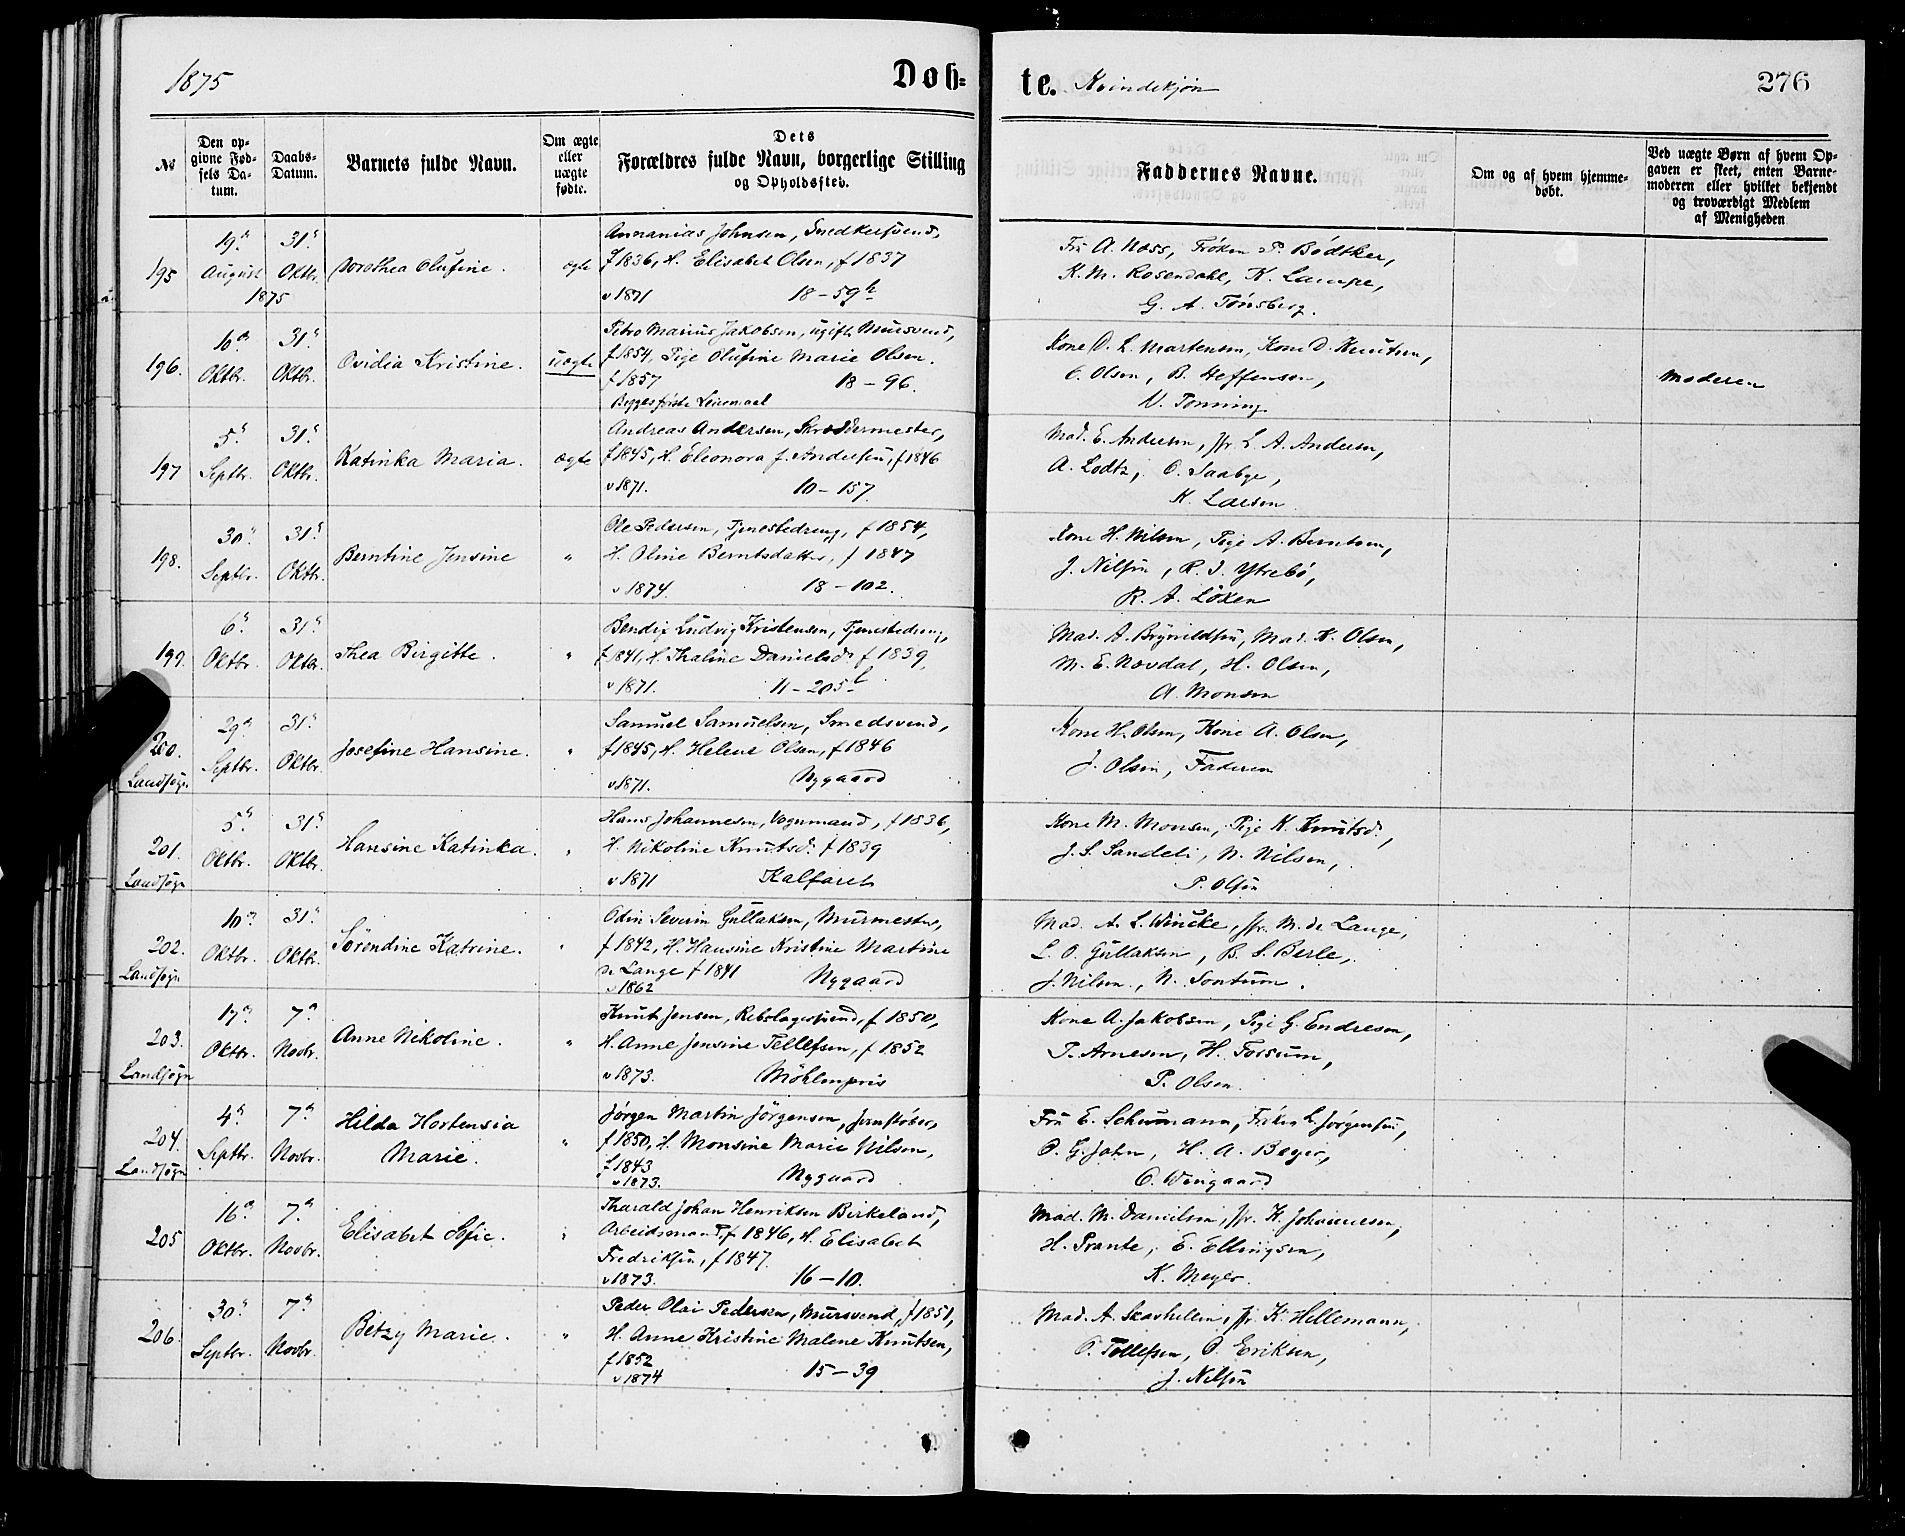 1875
Døb=
te. Kvindekjøn
276
No
Den op-
givne Fød-
sels Da-
tum.
Daabs-
Datum.
Barnets fulde Navn.
Om ægte
eller
uægte
fødte.
Dets
Forældres fulde Navn, borgerlige Stilling
og Opholdssted.
Faddernes Navne.
Om og af hvem hjemme-
døbt.
Ved uægte Børn af hvem Op-
gaven er skeet, enten Barne-
moderen eller hvilket bekjendt
og troværdigt Medlem
af Menigheden
195
19de August 1875
31te Oktbr.
Dorothea Olufine.
ægte
Annanias Johnsen, Snedkersvend,
f 1836, H. Elisabet Olsen, f 1837
v 1871 18-59
Fru A. Nass, Frøken P. Bødtker,
K. M. Rosendahl, K. Lampe,
G. A. Tønsberg.
196.
10de Oktbr.
31te Oktbr.
Ovidia Kristine.
uægte
Petro Marius Jakobsen, ugift Mursvend,
f 1854, Pige Olufine Marie Olsen.
f 1857 18-96.
Begges første Leiermaal
Kone D. L. Martensen, Kone D. Knutsen,
C. Olsen, B. Steffensen,
V. Tonning.
Moderen
197
5te Septbr.
31te Oktbr.
Katinka Maria.
ægte
Andreas Andersen, Skræddermester,
f 1845, H. Eleonora f. Andersen, f 1846
v 1871. 10-157.
Mad. E. Andersen, Jfr. L. A. Andersen,
A. Lodtz, O. Saabye,
K. Larsen
198.
30te Septbr.
31te Oktbr.
Berntine Jensine
"
Ole Pedersen, Tjenestedreng, f 1854,
H. Oline Berntsdatter, f 1847
v 1874. 18-102.
Kone H. Nilsen, Pige A. Berntsen,
J. Nilsen, R. I. Ytrebø,
R. A. Løxen
199.
6te Oktbr.
31te Oktbr.
Thea Birgitte.
"
Bendix Ludvig Kristensen, Tjenestedreng,
f 1841, H. Thaline Danielsdr f 1839
v 1871. 11-205b
Mad. A. Brynildsen, Mad. K. Olsen,
M. E. Novdal, H. Olsen,
A. Monsen
200.
Landsogn
29de Septbr.
31te Oktbr.
Josefine Hansine.
"
Samuel Samuelsen, Smedsvend,
f 1845, H. Helene Olsen, f 1846
v 1871. Nygaard
Kone H. Olsen, Kone A. Olsen,
J. Olsen, Faderen
201.
Landsogn
5te Oktbr.
31te Oktbr.
Hansine Katinka.
"
Hans Johannesen, Vognmand, f 1836,
H. Nikoline Knutsd. f 1839
v 1871 Kalfaret
Kone M. Monsen, Pige K. Knutsd.,
J. S. Sandeli, N. Nilsen,
P. Olsen
202.
Landsogn
10de Oktbr.
31te Oktbr.
Sørendine Katrine.
"
Odin Severin Gullaksen, Murmester,
f 1842, H. Hansine Kristine Martine
de Lange f 1841 Nygaard
v 1862
Mad. A. L. Wincke, Jfr. M. de Lange,
L. O. Gullaksen, B. S. Berle,
J. Nilsen, N. Sontum.
203.
Landsogn
17de Oktbr.
7de Novbr.
Anne Nikoline.
"
Knut Jensen, Rebslagersvend, f 1850,
H. Anne Jensine Tellefsen, f 1852
v 1873. Møhlenpris
Kone A. Jakobsen, Pige G. Endresen,
P. Arnesen, H. Forsum,
P. Olsen.
204.
Landsogn
4de Septbr.
7de Novbr.
Hilda Hortensia
Marie.
"
Jørgen Martin Jørgensen, Jernstøber,
f 1850, H. Monsine Marie Nilsen,
f 1843
v 1873. Nygaard
Fru E. Schumann, Frøken L. Jørgensen,
O. G. Jahn, H. A. Beyer,
C. Wingaard
205
16de Oktbr.
7de Novbr.
Elisabet Sofie.
"
Tharald Johan Henriksen Birkeland,
Arbeidsmand, f 1846, H. Elisabet
Fredriksen, f 1847.
v 1873. 16-10.
Mad. M. Danielsen, Jfr. K. Johannesen,
H. Prante, E. Ellingsen,
K. Meyer.
206.
30te Septbr.
7de Novbr.
Betzy Marie.
"
Peder Olai Pedersen, Mursvend, f 1851,
H. Anne Kristine Malene Knutsen,
f 1852
v 1874 15-39
Mad. A. Skavhellen, Jfr. K. Hellemann,
O. Tollefsen, O. Eriksen,
J. Nilsen